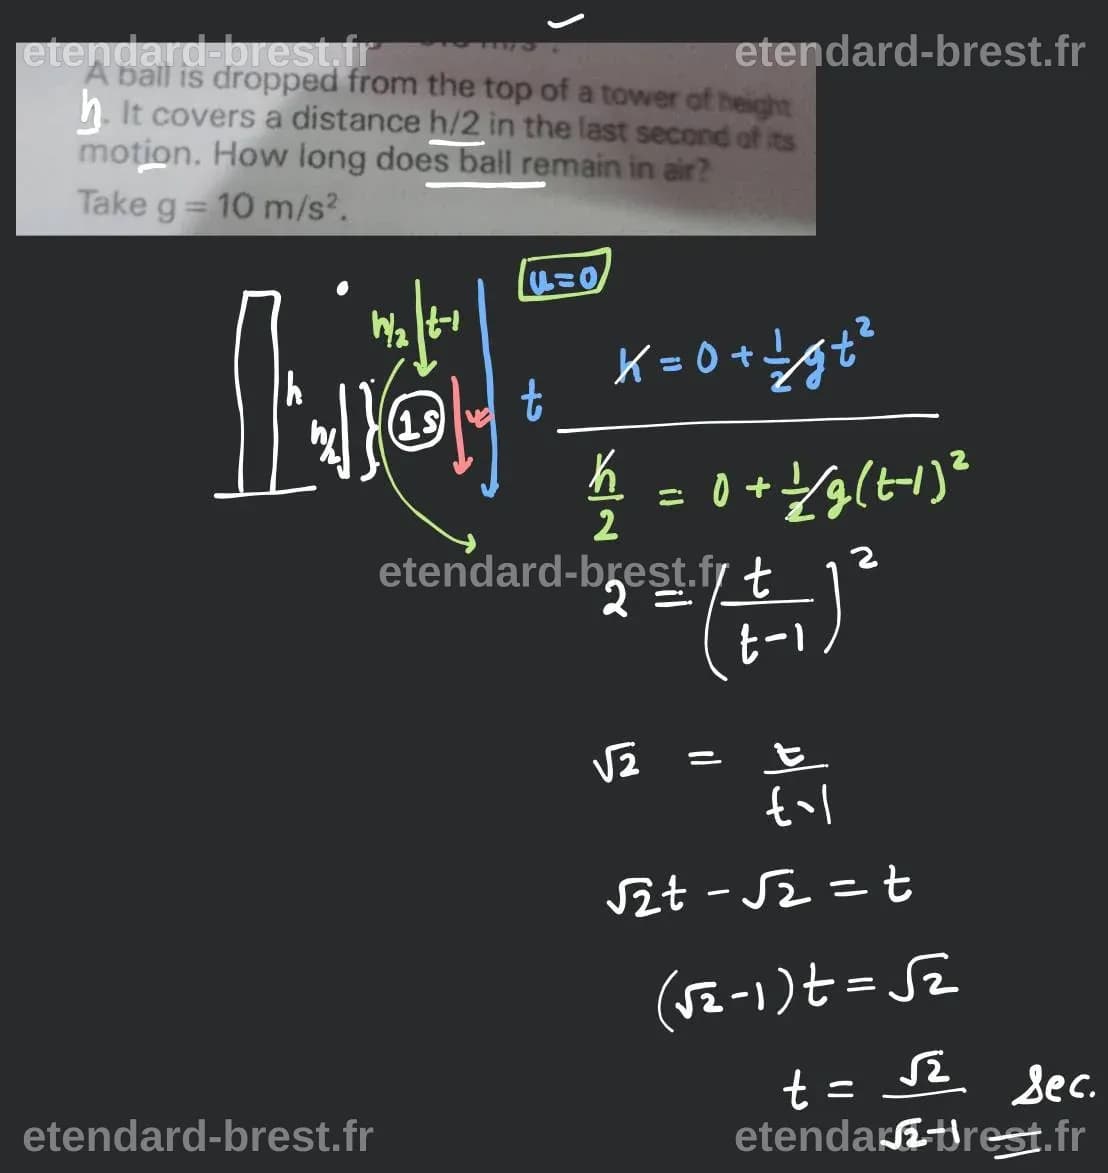 etendard-brest.fr etendard-brest.fr
A ball is dropped from the top of a tower of height
h. It covers a distance h/2 in the last second of its
motion. How long does ball remain in air?
Take g = 10 m/s².
u=0
h/2 t-1
h = 0 + 1/2 g t²
h
h/2 1s t
h/2 = 0 + 1/2 g(t-1)²
etendard-brest.fr
2 = (t/(t-1))²
√2 = t/(t-1)
√2t - √2 = t
(√2-1)t = √2
t = √2/(√2-1) sec.
etendard-brest.fr etendard-brest.fr